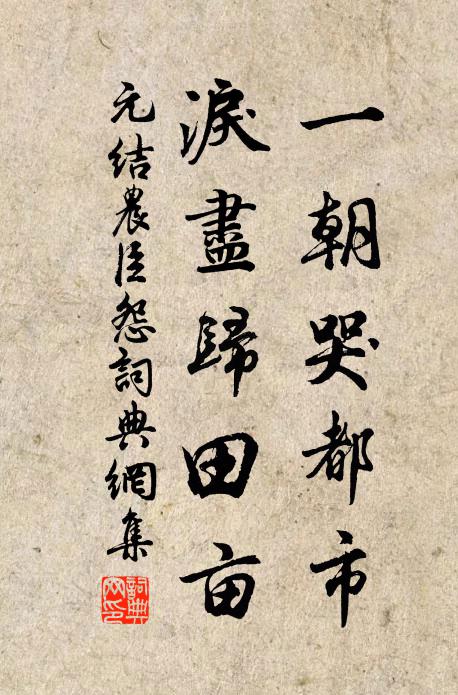 一朝哭都市
淚盡歸田亩
元结農臣怨詞典網集
詞典网印